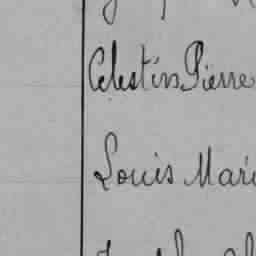 Célestin Pierre
Louis Mari